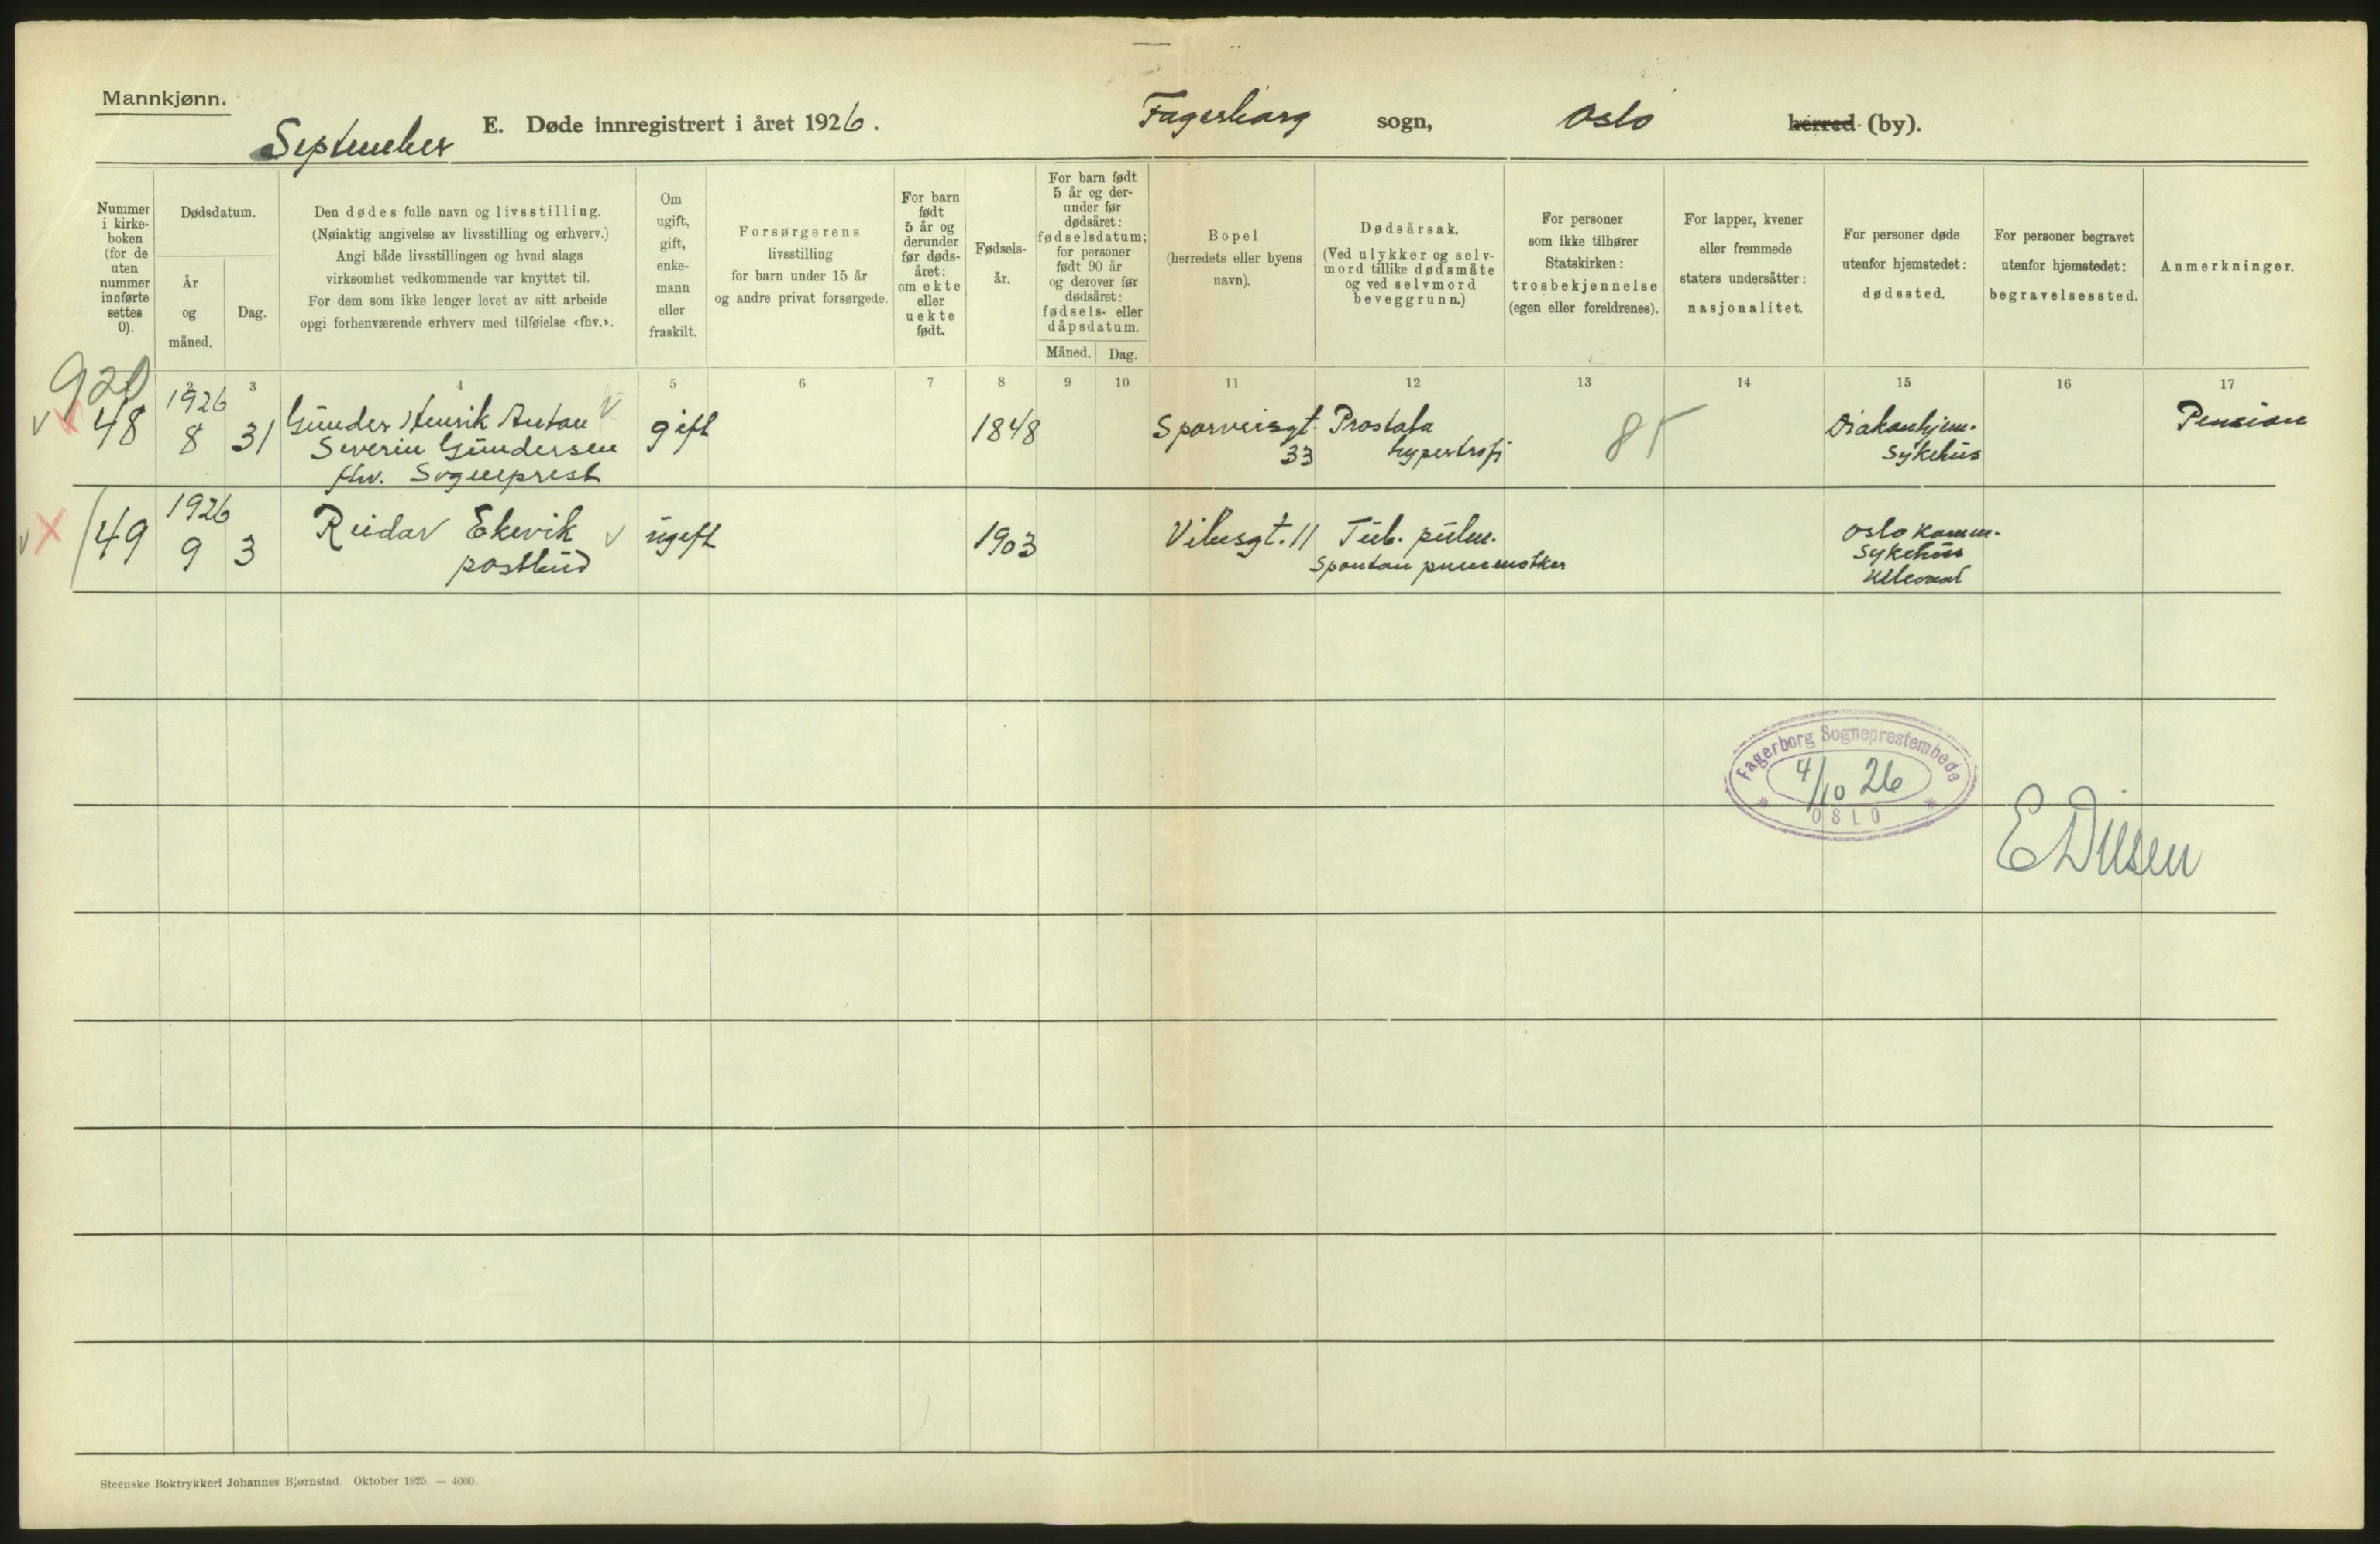 Mannkjønn.
September
E. Døde innregistrert i året 1926.
Fagerborg sogn, Oslo herred (by).
Nummer i kirke-boken (for de uten nummer innførte settes 0).
Dødsdatum.
År og måned.
Dag.
Den dødes fulle navn og livsstilling.
(Nøiaktig angivelse av livsstilling og erhverv.)
Angi både livsstillingen og hvad slags
virksomhet vedkommende var knyttet til.
For dem som ikke lenger levet av sitt arbeide
opgi forhenværende erhverv med tilføielse «fhv.».
Om ugift, gift, enke-mann eller fraskilt.
Forsørgerens
livsstilling
for barn under 15 år
og andre privat forsørgede.
For barn født 5 år og derunder før døds-året: om ekte eller uekte født.
Fødsels-år.
For barn født 5 år og der-under før dødsåret: fødselsdatum; for personer født 90 år og derover før dødsåret: fødsels- eller dåpsdatum.
Måned. Dag.
Bopel
(herredets eller byens
navn).
Dødsårsak.
(Ved ulykker og selv-
mord tillike dødsmåte
og ved selvmord
beveggrunn.)
For personer
som ikke tilhører
Statskirken:
trosbekjennelse
(egen eller foreldrenes).
For lapper, kvener
eller fremmede
staters undersåtter:
nasjonalitet.
For personer døde
utenfor hjemstedet:
dødssted.
For personer begravet
utenfor hjemstedet:
begravelsessted.
Anmerkninger.
920
2 3 4 5 6 7 8 9 10 11 12 13 14 15 16 17
48
1926
8 31
Gunder Henrik Anton
Severin Gundersen
fhv. Sogneprest
gift
1848
Sporveisgt.
33
Prostata
hypertrofi
85
Diakonhjem.
Sykehus
Pension
49
1926
9 3
Reidar Ekevik
postbud
ugift
1903
Vibesgt. 11
Tub. pulm.
Spontan pneumotker
Oslo Komm.
Sykehus
Ulleval
Fagerborg Sogneprestembede
4/10 26
OSLO
Steenske Boktrykkeri Johannes Bjørnstad. Oktober 1925. — 4000.